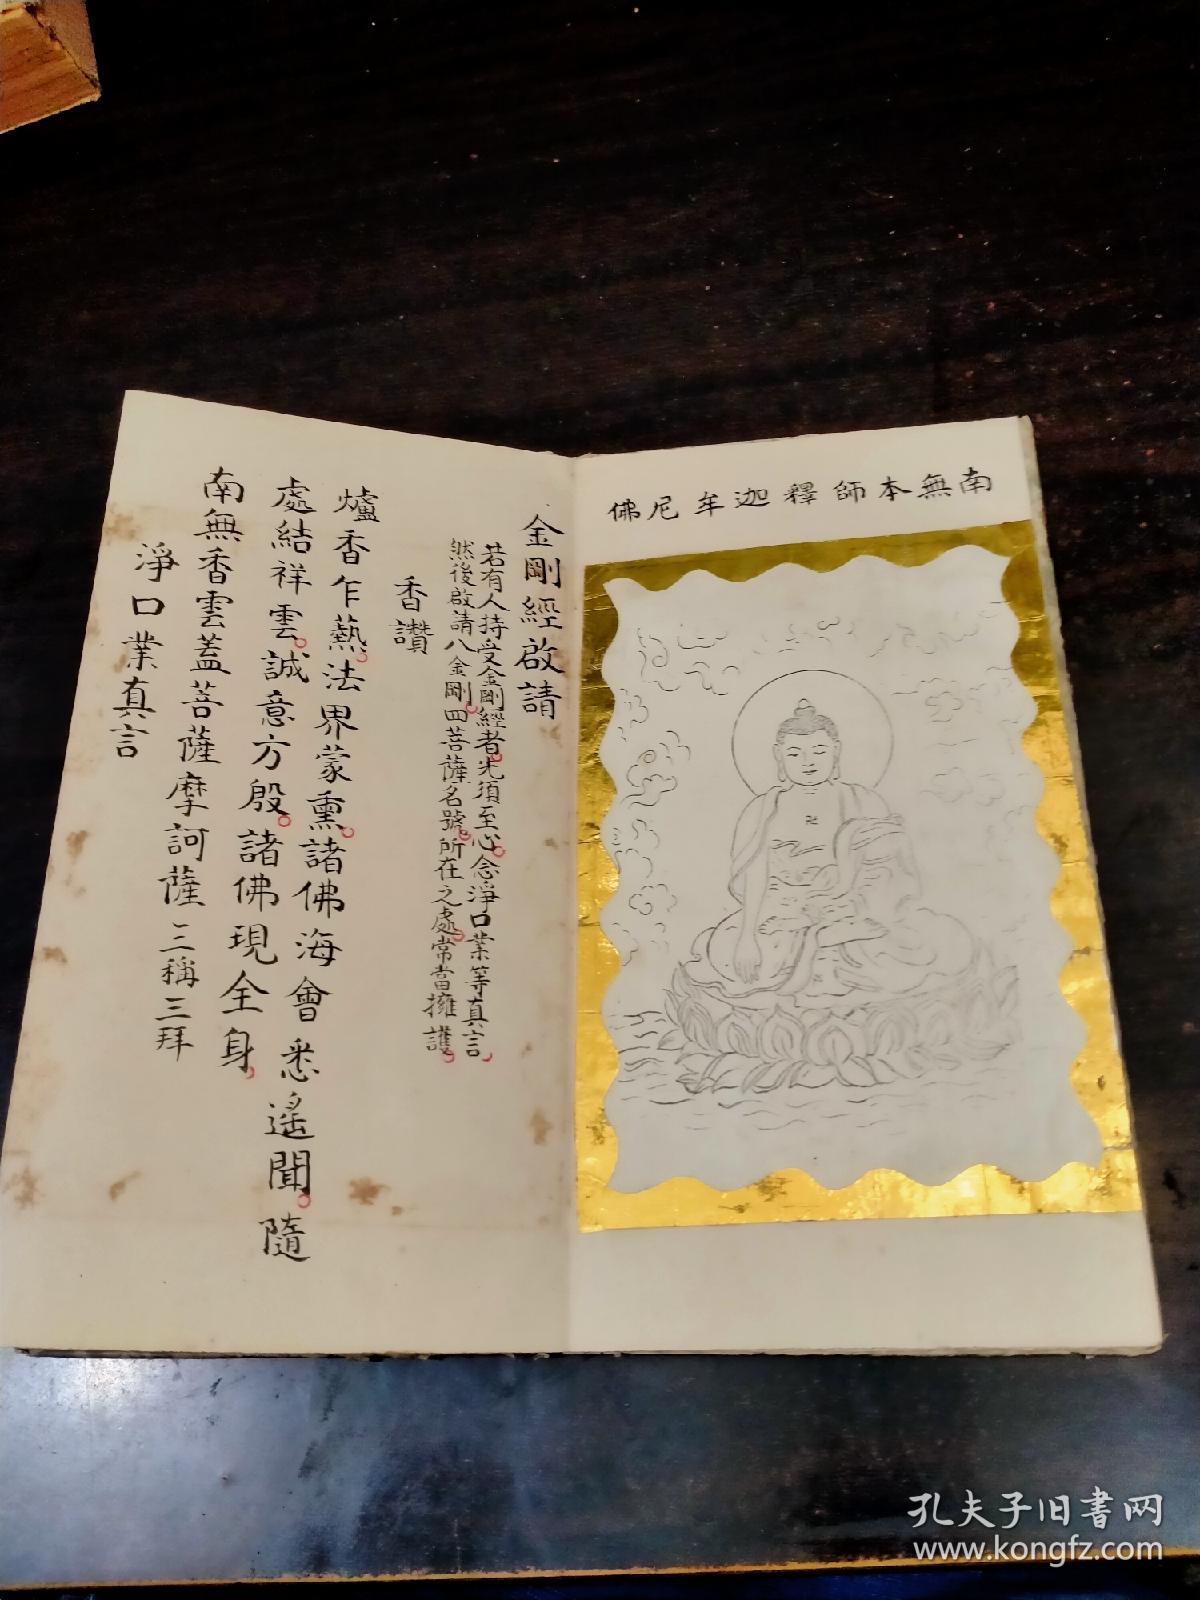 南無本師釋迦牟尼佛
金剛經啟請
若有人持受金剛經者先須至心念淨口業等真言
然後啟請八金剛四菩薩名號所在之處常當擁護
香讚
爐香乍爇法界蒙熏諸佛海會悉遙聞隨
處結祥雲誠意方殷諸佛現全身
南無香雲蓋菩薩摩訶薩三稱三拜
淨口業真言
卍
孔夫子旧書网
www.kongfz.com